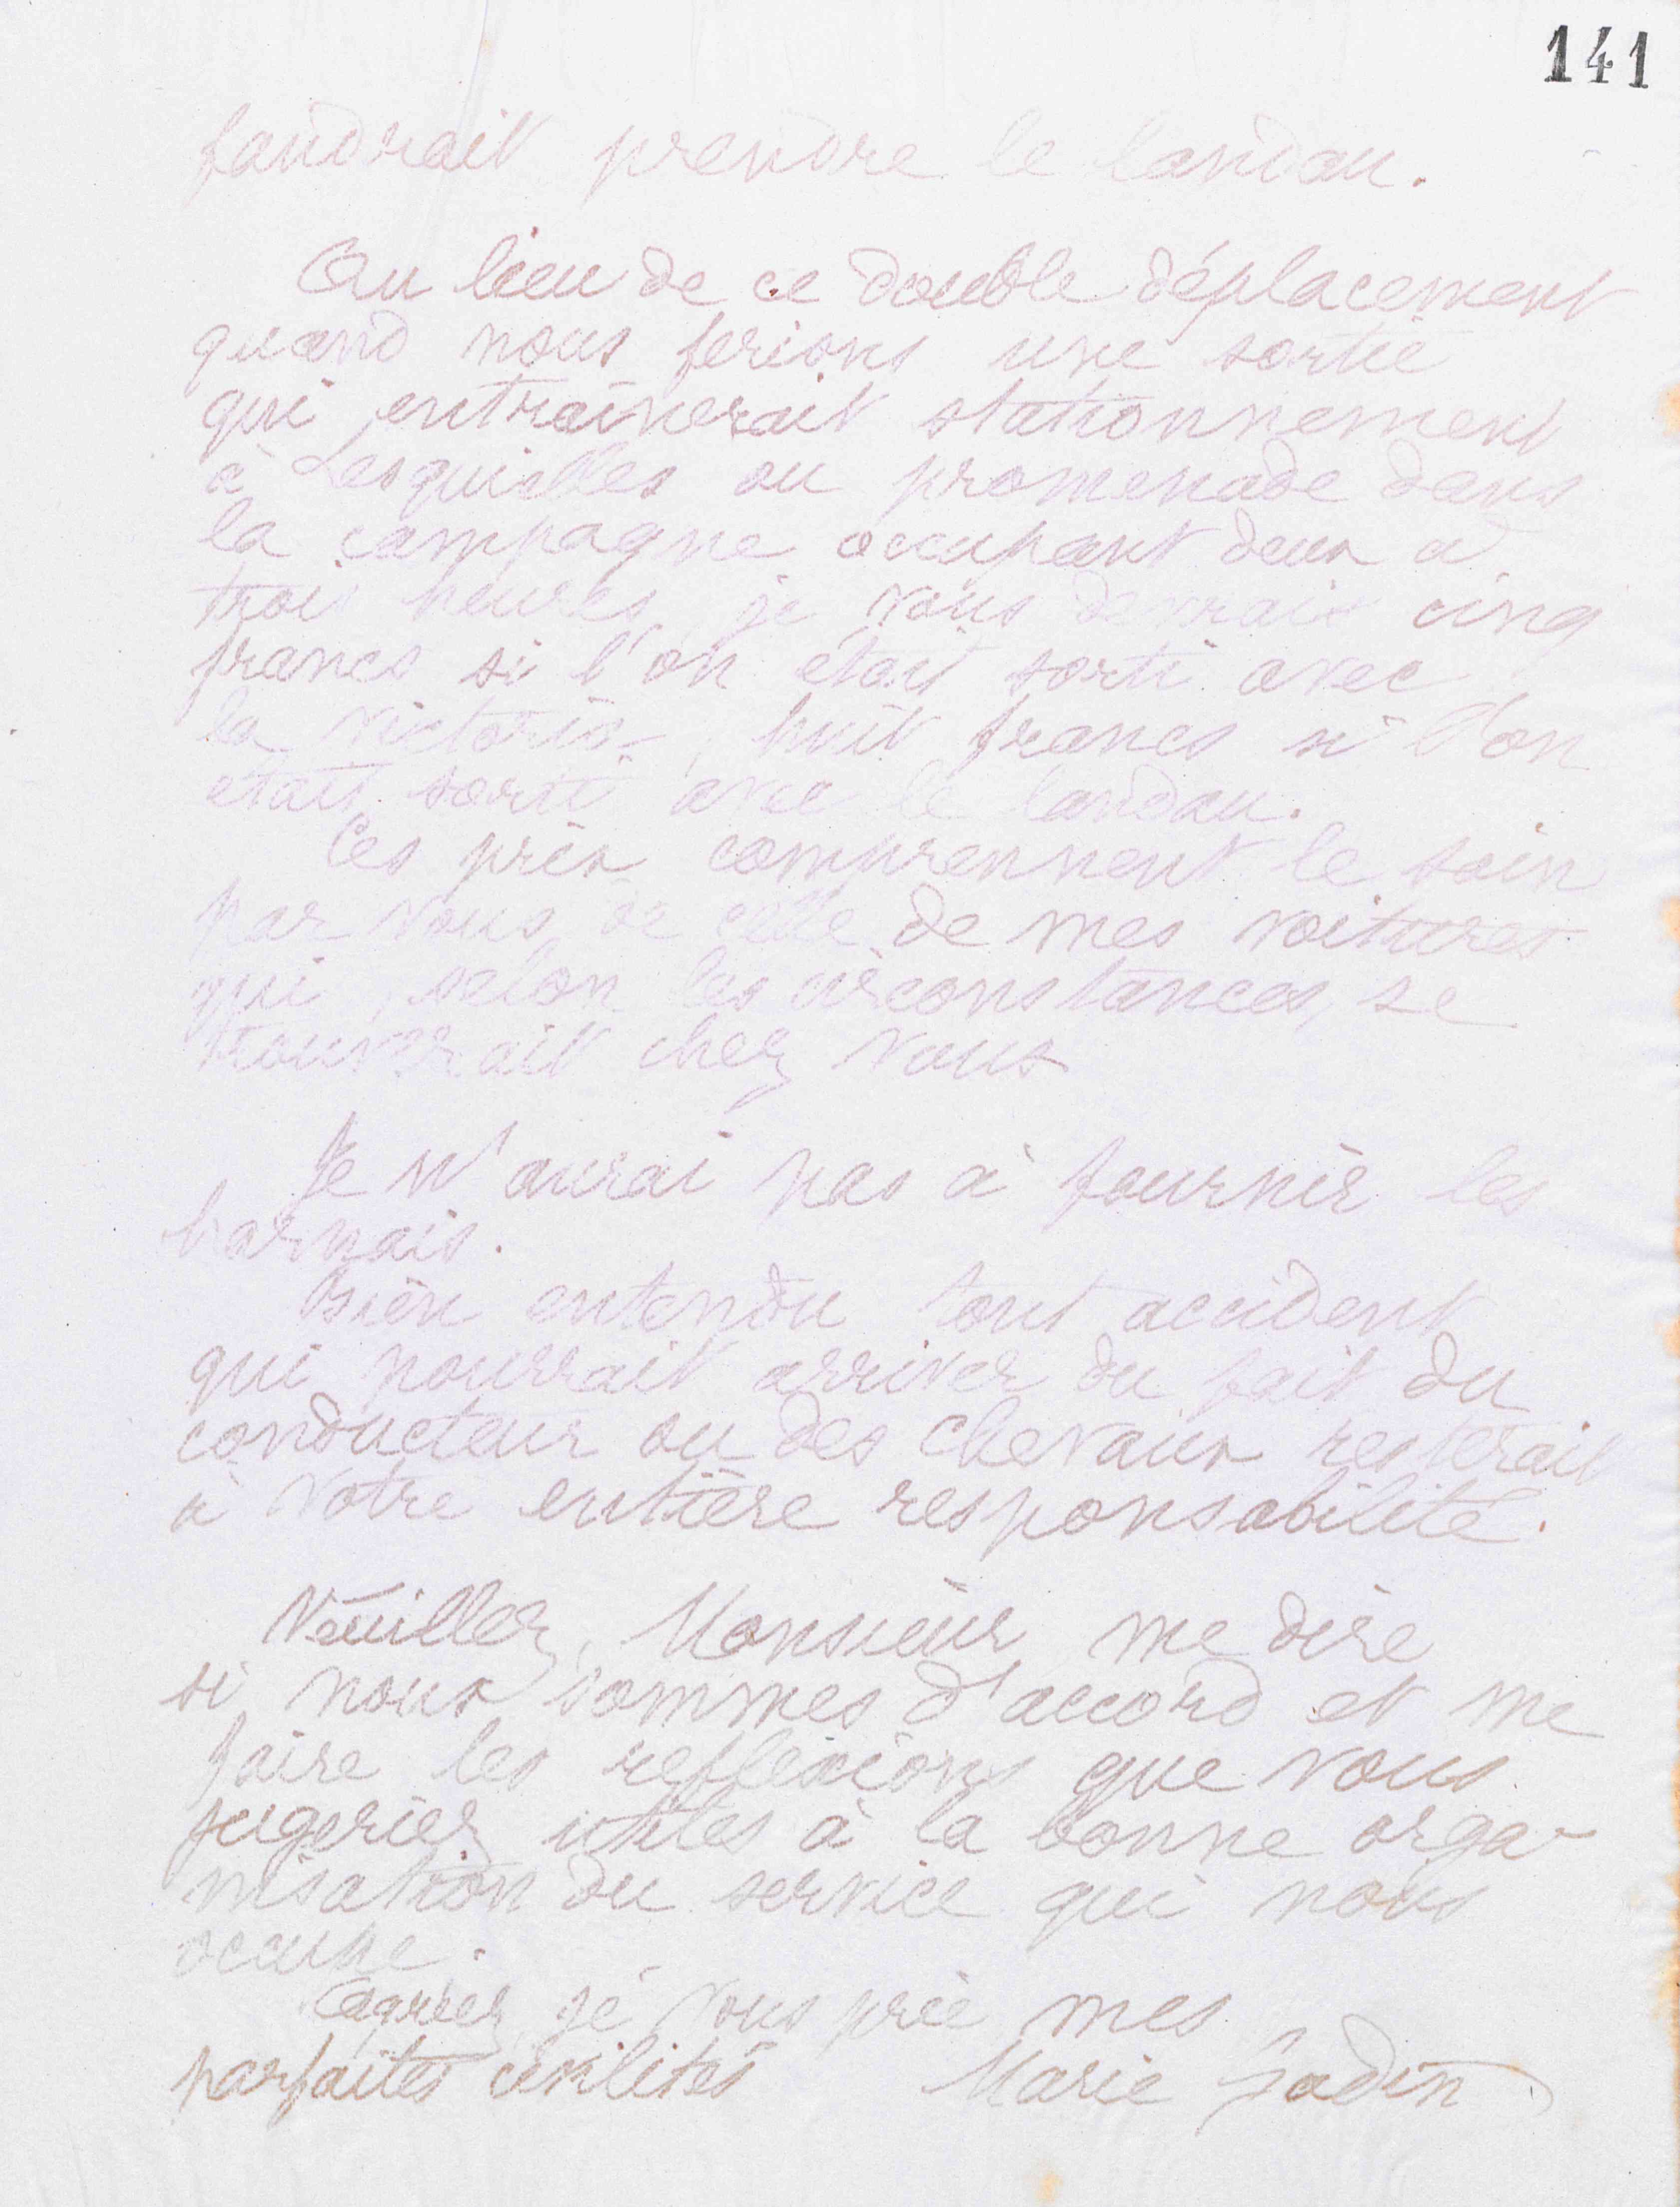 141
faudrait prendre le landau.
Au lieu de ce double déplacement
quand nous ferions une sortie
qui entraînerait stationnement
à Lesquielles ou promenade dans
la campagne occupant deux à
trois heures, je vous devrais cinq
francs si l'on était sorti avec
la victoria, huit francs si l'on
était sorti avec le landau.
Ces prix comprennent le soin
par vous de celle de mes voitures
qui, selon les circonstances, se
trouverait chez vous
Je n'aurai pas à fournir les
harnais.
Bien entendu tout accident
qui pourrait arriver du fait du
conducteur ou des chevaux resterait
à votre entière responsabilité.
Veuillez, Monsieur me dire
si nous sommes d'accord et me
faire les reflexions que vous
jugeriez utiles à la bonne orga-
nisation du service qui nous
occupe.
Agréez je vous prie mes
parfaites civilités Marie Godin